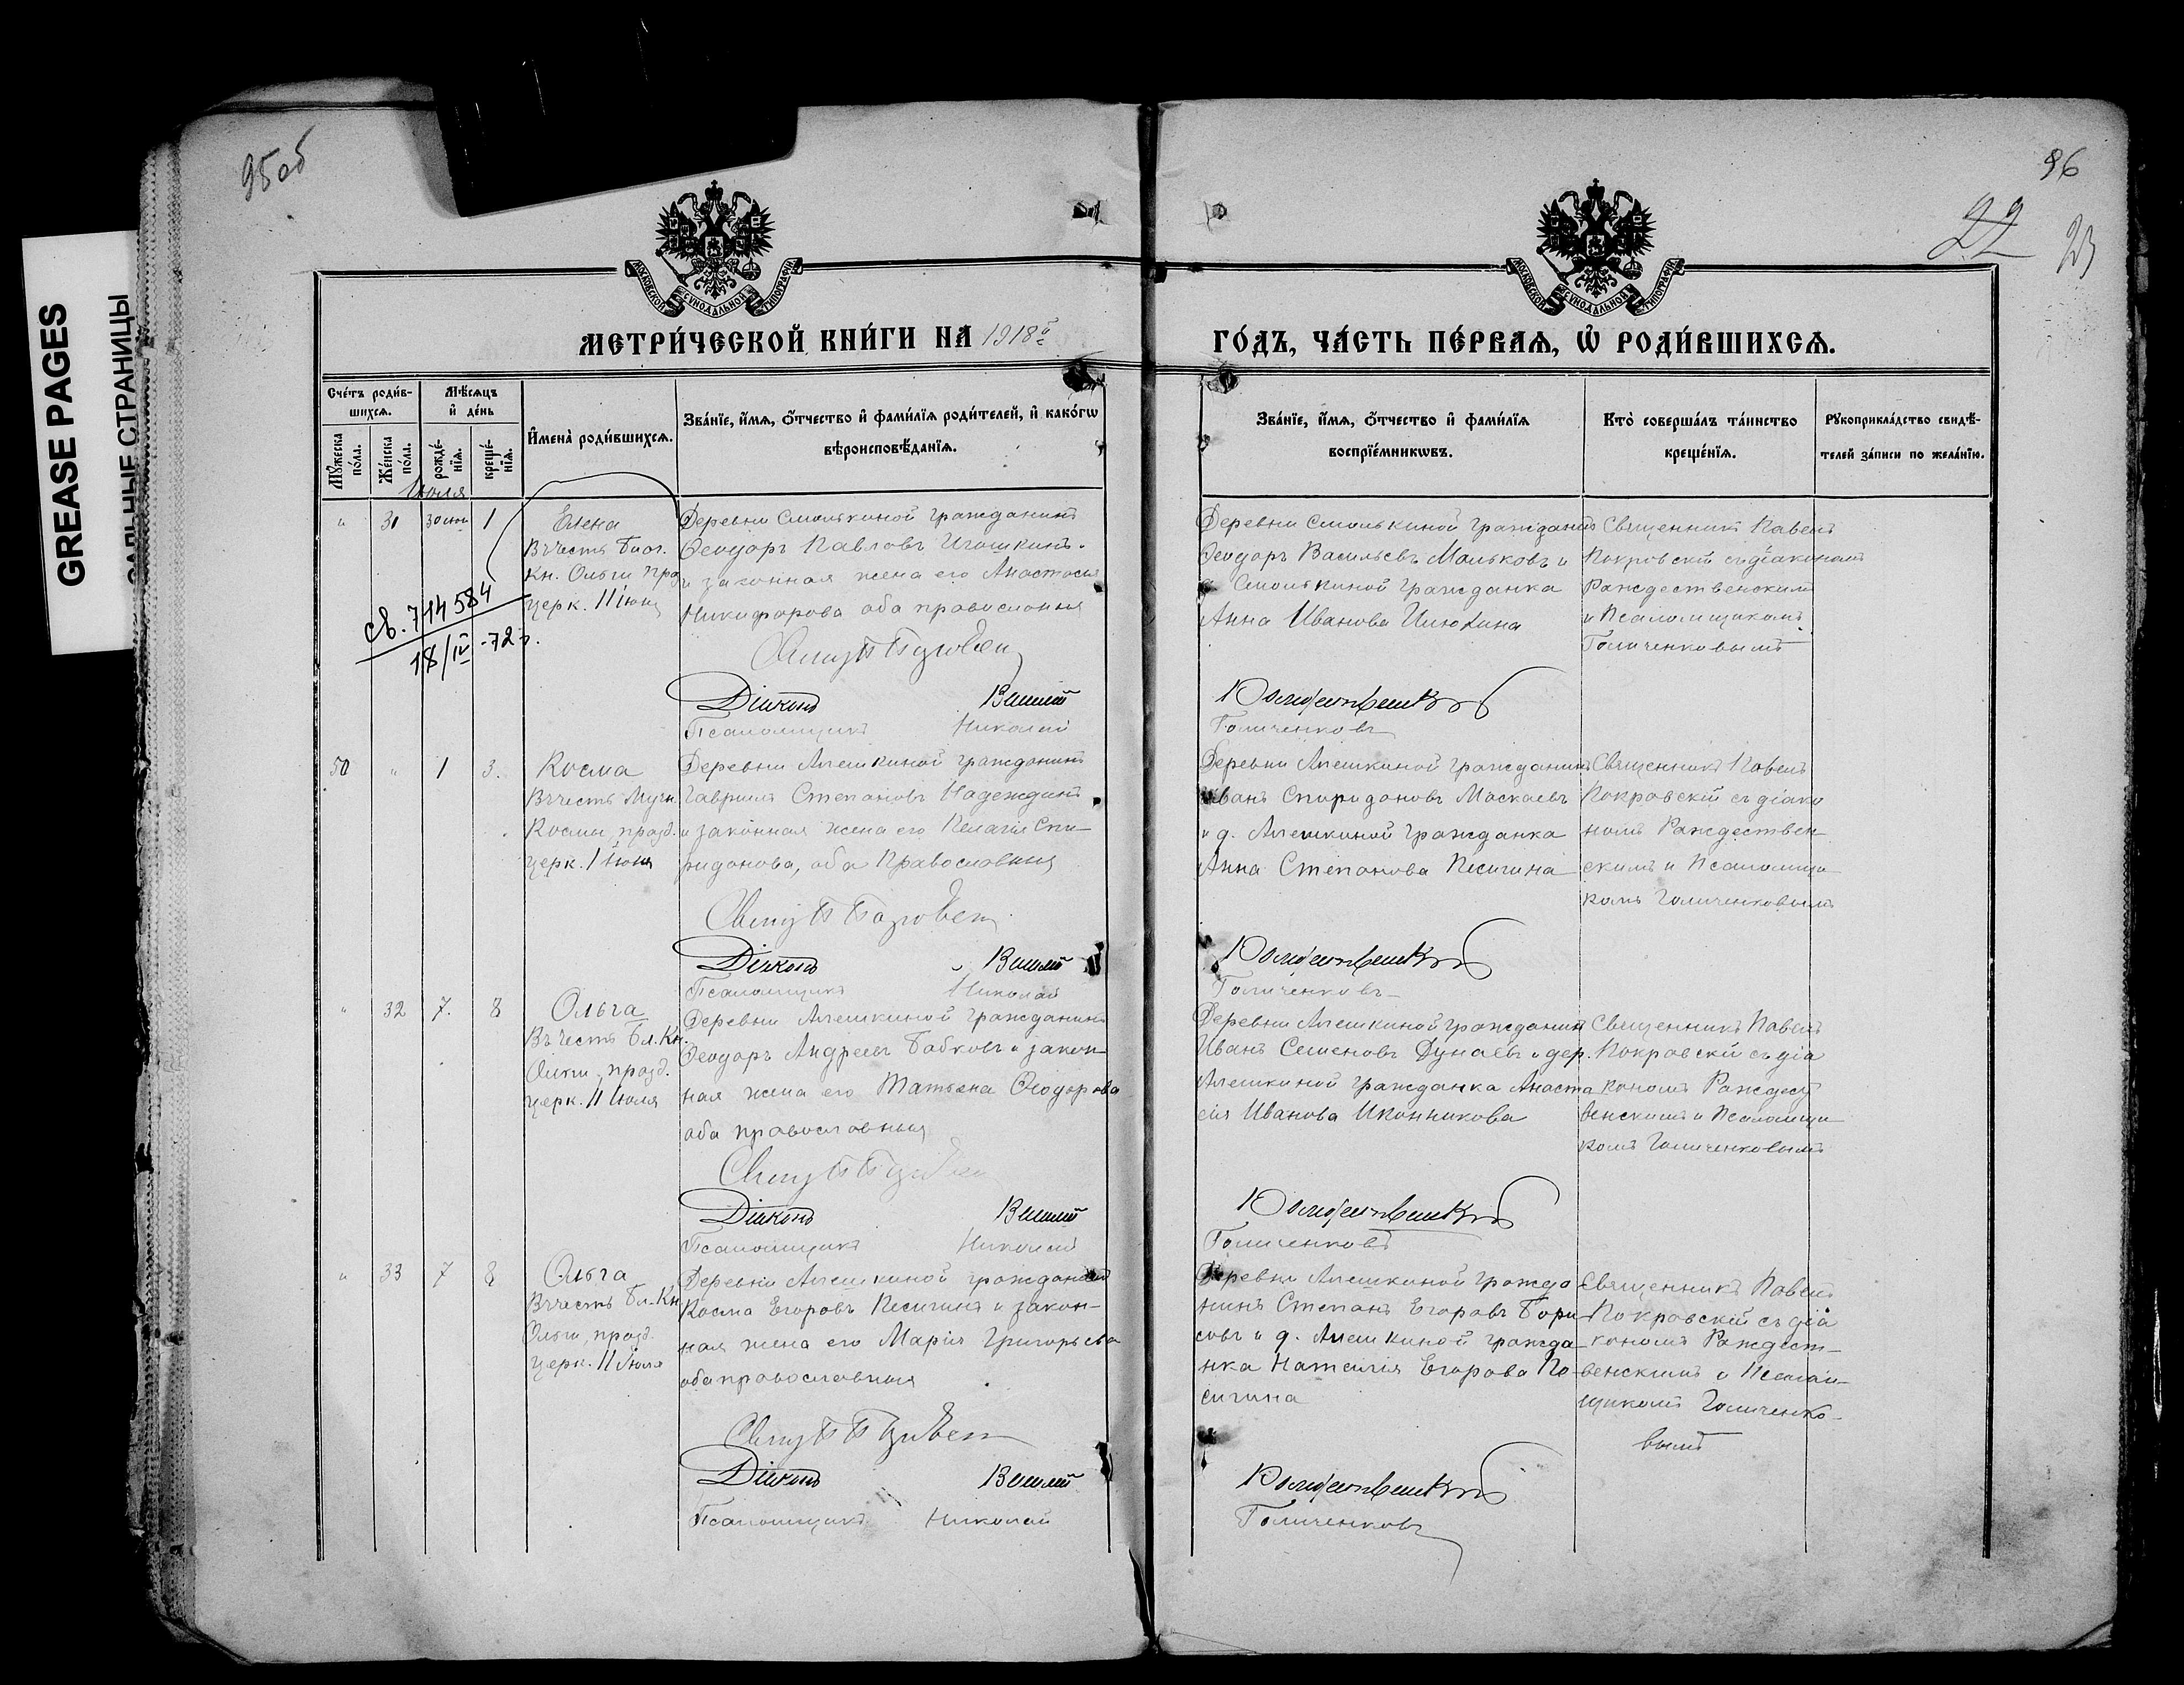 95об
96
22
23
GREASE PAGES
САЛЬНЫЕ СТРАНИЦЫ
МОСКОВСКОЙ СУНОДАЛЬНОЙ ТИПОГРАФІИ
МОСКОВСКОЙ СУНОДАЛЬНОЙ ТИПОГРАФІИ
МЕТРИ́ЧЕСКОЙ КНИ́ГИ НА 1918й
ГО́ДЪ, ЧА́СТЬ ПЕ́РВАѦ, Ѡ РОДИ́ВШИХСѦ.
Сче́тъ роди́в-
шихсѧ.
Мѣ́сяцъ
и҆ де́нь
Мꙋ́жеска
по́ла.
Же́нска
по́ла.
рожде́-
нїѧ.
креще́-
нїѧ.
И҆мена̀ роди́вшихсѧ.
Зва́нїе, и҆́мѧ, ѻ҆́тчество и҆ фами́лїѧ роди́телей, и҆ како́гѡ
вѣроисповѣ́данїѧ.
Зва́нїе, и҆́мѧ, ѻ҆́тчество и҆ фами́лїѧ
воспрїе́мникѡвъ.
Кто̀ соверша́лъ та́инство
креще́нїѧ.
Рꙋкоприкла́дство свидѣ́-
телей за́писи по жела́нїю.
Июля
" 31 30 июн 1
Елена
Въ честь Благ.
Кн. Ольги праз
церк. 11 Июля
св. 714584
18/IV -72 г.
Деревни Смолькиной гражданинъ
Ѳеодоръ Павловъ Игошкинъ
и законная жена его Анастасiя
Никифорова оба православныя
Дiаконъ Василiй
Псаломщикъ Николай
Деревни Смолькиной гражданинъ
Ѳеодоръ Васильевъ Мальковъ и
д. Смолькиной гражданка
Анна Иванова Илюхина
Рождественскiй
Голиченковъ
Священникъ Павелъ
Покровскiй съ дiакономъ
Рождественскимъ
и Псаломщикомъ
Голиченковымъ
50 " 1 3.
Косма
Въ честь Муч.
Космы, празд.
церк. 1 Июля
Деревни Алешкиной гражданинъ
Гаврiилъ Степановъ Надеждинъ
и законная жена его Пелагiя Спи-
ридонова, оба Православныя
Дiаконъ Василiй
Псаломщикъ Николай
Деревни Алешкиной гражданинъ
Иванъ Спиридоновъ Маскаевъ
и д. Алешкиной гражданка
Анна Степанова Песигина
Рождественскiй
Голиченковъ
Священникъ Павелъ
Покровскiй съ дiако
номъ Рождествен-
скимъ и Псаломщи-
комъ Голиченковымъ
" 32 7. 8
Ольга
Въ честь Бл. Кн.
Ольги, празд.
церк. 11 Июля
Деревни Алешкиной гражданинъ
Ѳеодоръ Андреевъ Бабковъ и закон-
ная жена его Татьяна Ѳеодорова
оба православныя
Дiаконъ Василiй
Псаломщикъ Николай
Деревни Алешкиной гражданинъ
Иванъ Семеновъ Дунаевъ и дер.
Алешкиной гражданка Анаста
сiя Иванова Иконникова
Рождественскiй
Голиченковъ
Священникъ Павелъ
Покровскiй съ дiа
кономъ Рождест
венскимъ и Псаломщи-
комъ Голиченковымъ
" 33 7 8
Ольга
Въ честь Бл. Кн.
Ольги, празд.
церк. 11 Июля
Деревни Алешкиной гражданинъ
Косма Егоровъ Песигинъ и закон-
ная жена его Марiя Григорьева
оба православныя
Дiаконъ Василiй
Псаломщикъ Николай
Деревни Алешкиной гражда
нинъ Степанъ Егоровъ Бори
совъ и д. Алешкиной гражда-
нка Наталiя Егорова Пе-
сигина
Рождественскiй
Голиченковъ
Священникъ Павелъ
Покровскiй съ дiа
кономъ Рождест-
венскимъ и Псалом-
щикомъ Голиченко-
вымъ